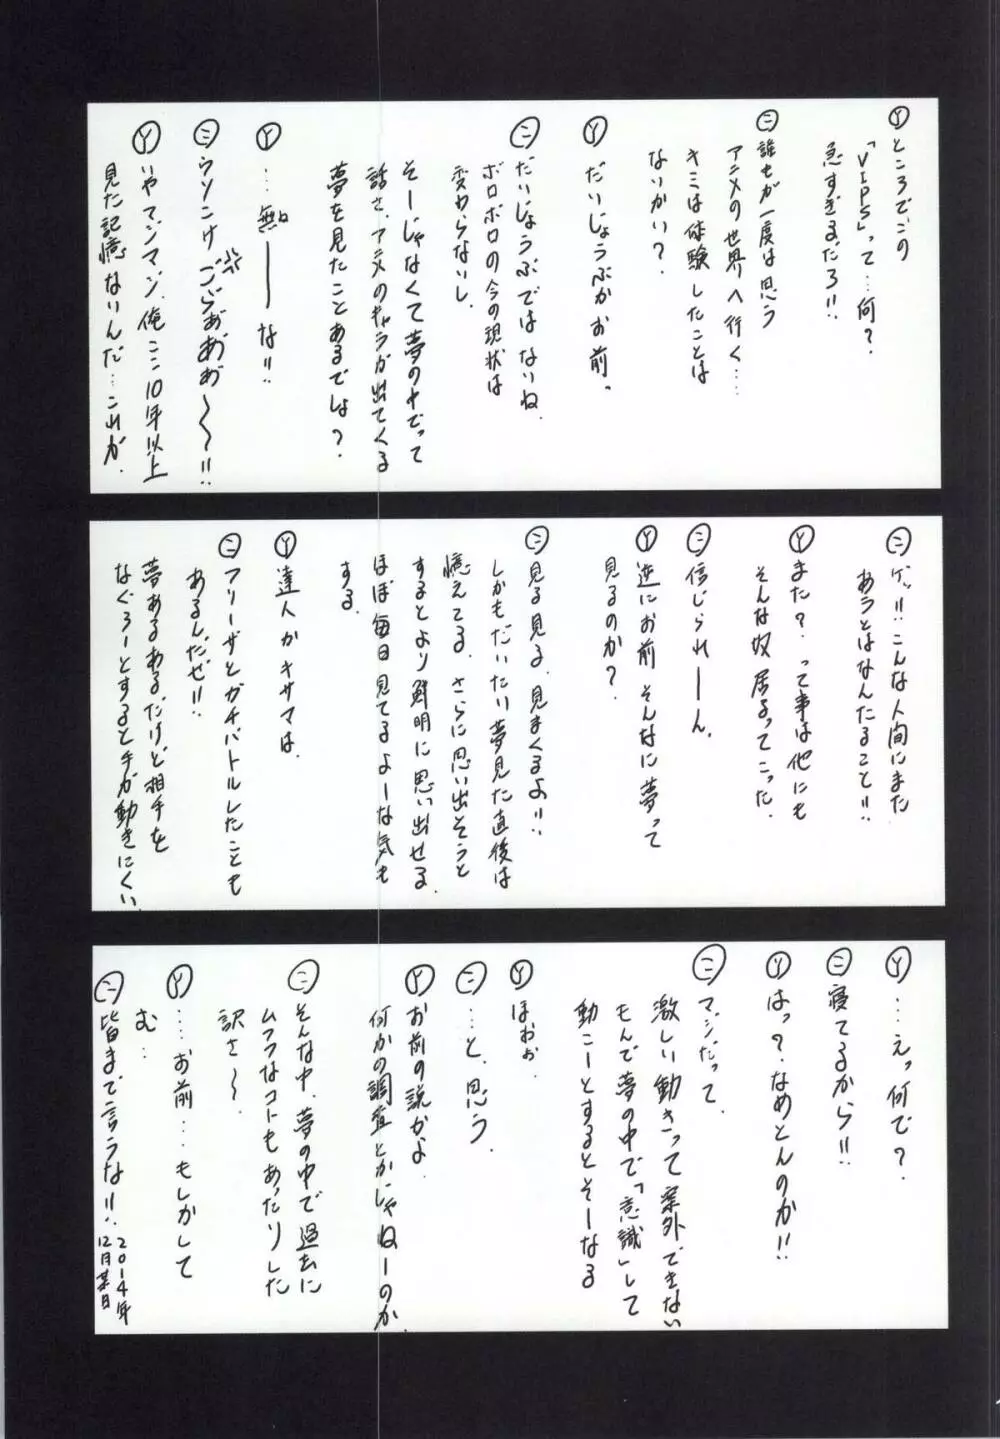 Ⓨところでこの
「VIPS」って…何？
急すぎるだろ!!
㊁誰もが一度は思う
アニメの世界へ行く…
キミは体験したことは
ないかい？
Ⓨだいじょうぶかお前っ
㊁だいじょうぶではないね、
ボロボロの今の現状は
変わらないし、
そーじゃなくて夢の中でって
話さ、アニメのキャラが出てくる
夢を見たことあるでしょ？
Ⓨ…無―な!!
㊁ウソこけごらぁぁぁ〜〜!!
Ⓨいやマンマン、俺ここ10年以上
見た記憶ないんだ…これが、
㊁ゲッ!!こんな人間にまた
あうとはなんたること!!
Ⓨまた？って事は他にも
そんな奴居るってこった、
㊁信じられーん、
Ⓨ逆にお前そんなに夢って
見るのか？
㊁見る見る、見まくるよ!!
しかもだいたい夢見た直後は
憶えてる、さらに思い出そうと
するとより鮮明に思い出せる、
ほぼ毎日見てるよーな気も
する、
Ⓨ達人かキサマは、
㊁フリーザとガチバトルしたことも
あるんだぜ!!
夢あるある、だけど相手を
なぐろーとすると手が動きにくい、
Ⓨ…えっ何で？
㊁寝てるから!!
Ⓨはっ？、なめとんのか!!
㊁マジだって、
激しい動きって案外できない
もんで夢の中で「意識」して
動こーとするとそーなる
Ⓨほぉぉ、
㊁…と、思う、
Ⓨお前の説かよ、
何かの調査とかじゃねーのか、
㊁そんな中、夢の中で過去に
ムフフなコトもあったりした
訳さ〜
Ⓨ……お前…もしかして
む…
㊁皆まで言うな!!
2014年
12月某日